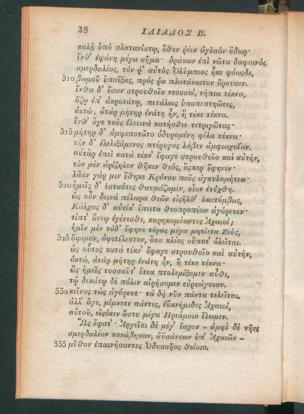 38 ΙΛΙΑΔΟΣ Β.
καλῇ ὑπὸ πλατανίστῳ, ὅθεν ῥέεν ἀγλαὸν ὕδωρ·
ἔνθ' ἐφάνη μέγα σῆμα· δράκων ἐπὶ νῶτα δαφοινὸς
σμερδαλέος, τόν ῥ' αὐτὸς Ὀλύμπιος ἧκε φόωσδε,
310 βωμοῦ ὑπαΐξας, πρός ῥα πλατάνιστον ὄρουσεν.
ἔνθα δ' ἔσαν στρουθοῖο νεοσσοί, νήπια τέκνα,
ὄζῳ ἐπ' ἀκροτάτῳ, πετάλοις ὑποπεπτηῶτες,
ὀκτώ, ἀτὰρ μήτηρ ἐνάτη ἦν, ἣ τέκε τέκνα.
ἔνθ' ὅγε τοὺς ἐλεεινὰ κατήσθιε τετριγῶτας·
315 μήτηρ δ' ἀμφεποτᾶτο ὀδυρομένη φίλα τέκνα·
τὴν δ' ἐλελιξάμενος πτέρυγος λάβεν ἀμφιαχυῖαν.
αὐτὰρ ἐπεὶ κατὰ τέκν' ἔφαγε στρουθοῖο καὶ αὐτήν,
τὸν μὲν ἀρίζηλον θῆκεν θεός, ὅσπερ ἔφηνεν·
λᾶαν γάρ μιν ἔθηκε Κρόνου παῖς ἀγκυλομήτεω·
320 ἡμεῖς δ' ἑσταότες θαυμάζομεν, οἷον ἐτύχθη.
ὡς οὖν δεινὰ πέλωρα θεῶν εἰσῆλθ' ἑκατόμβας,
Κάλχας δ' αὐτίκ' ἔπειτα θεοπροπέων ἀγόρευεν·
τίπτ' ἄνεῳ ἐγένεσθε, καρηκομόωντες Ἀχαιοί;
ἡμῖν μὲν τόδ' ἔφηνε τέρας μέγα μητίετα Ζεύς,
325 ὄψιμον, ὀψιτέλεστον, ὅου κλέος οὔποτ' ὀλεῖται.
ὡς οὗτος κατὰ τέκν' ἔφαγε στρουθοῖο καὶ αὐτήν,
ὀκτώ, ἀτὰρ μήτηρ ἐνάτη ἦν, ἣ τέκε τέκνα·
ὣς ἡμεῖς τοσσαῦτ' ἔτεα πτολεμίξομεν αὖθι,
τῷ δεκάτῳ δὲ πόλιν αἱρήσομεν εὐρυάγυιαν.
330 κεῖνος τὼς ἀγόρευε· τὰ δὴ νῦν πάντα τελεῖται.
ἀλλ' ἄγε, μίμνετε πάντες, ἐϋκνήμιδες Ἀχαιοί,
αὐτοῦ, εἰσόκεν ἄστυ μέγα Πριάμοιο ἕλωμεν.
Ὣς ἔφατ'· Ἀργεῖοι δὲ μέγ' ἴαχον – ἀμφὶ δὲ νῆες
σμερδαλέον κονάβησαν, ἀϋσάντων ὑπ' Ἀχαιῶν –
335 μῦθον ἐπαινήσαντες Ὀδυσσῆος θείοιο.